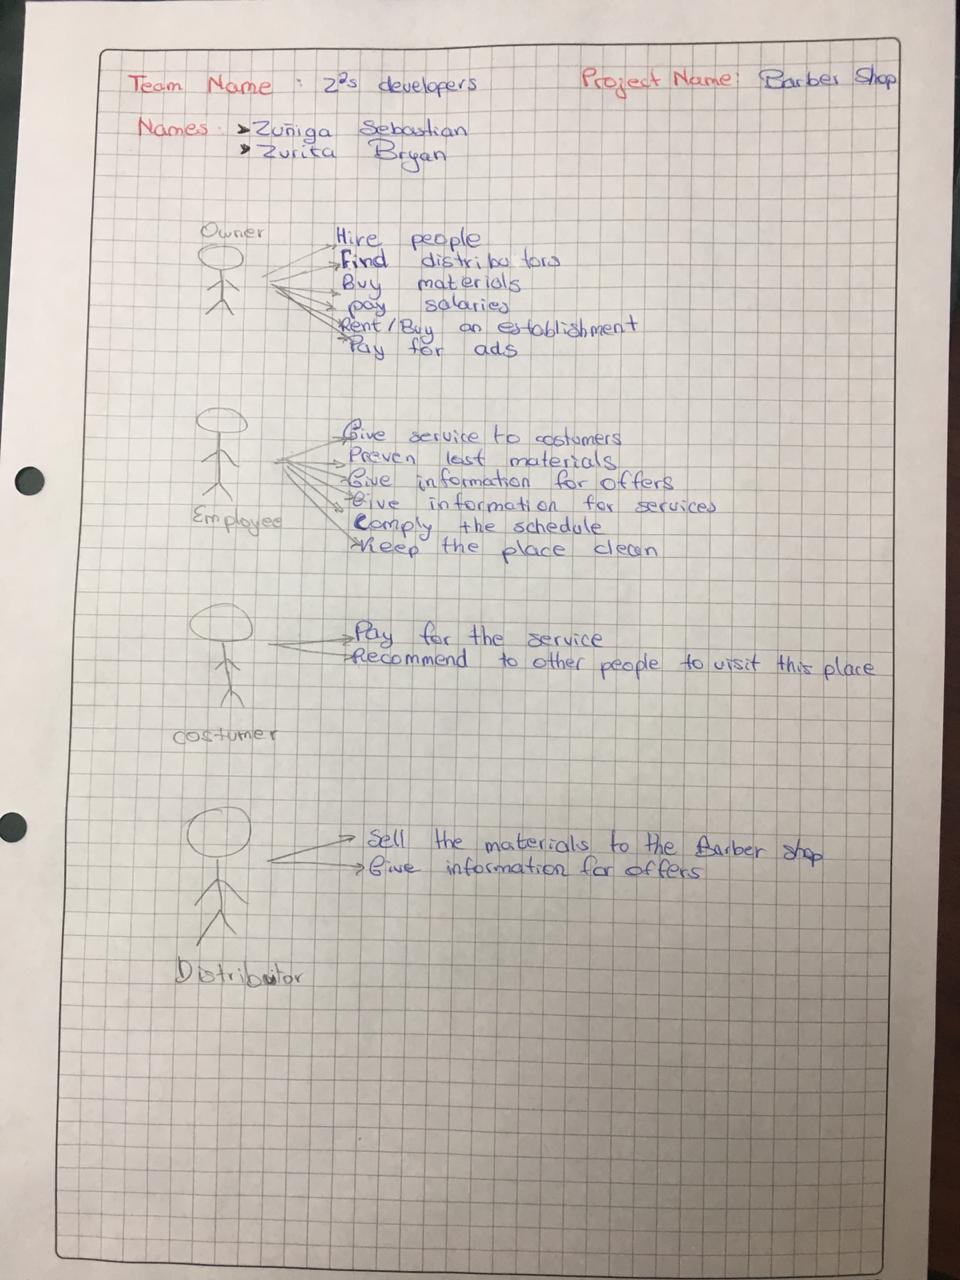 Team Name : Z²s developers Project Name: Barber Shop
Names: ➤Zuñiga Sebastian
➤Zurita Bryan
Owner
Hire people
Find distributors
Buy materials
pay salaries
Rent/Buy an establishment
Pay for ads
Give service to costumers
Preven lost materials
Give information for offers
Give information for services
Comply the schedule
Keep the place clean
Employee
Pay for the service
Recommend to other people to visit this place
costumer
Sell the materials to the Barber shop
Give information for offers
Distributor